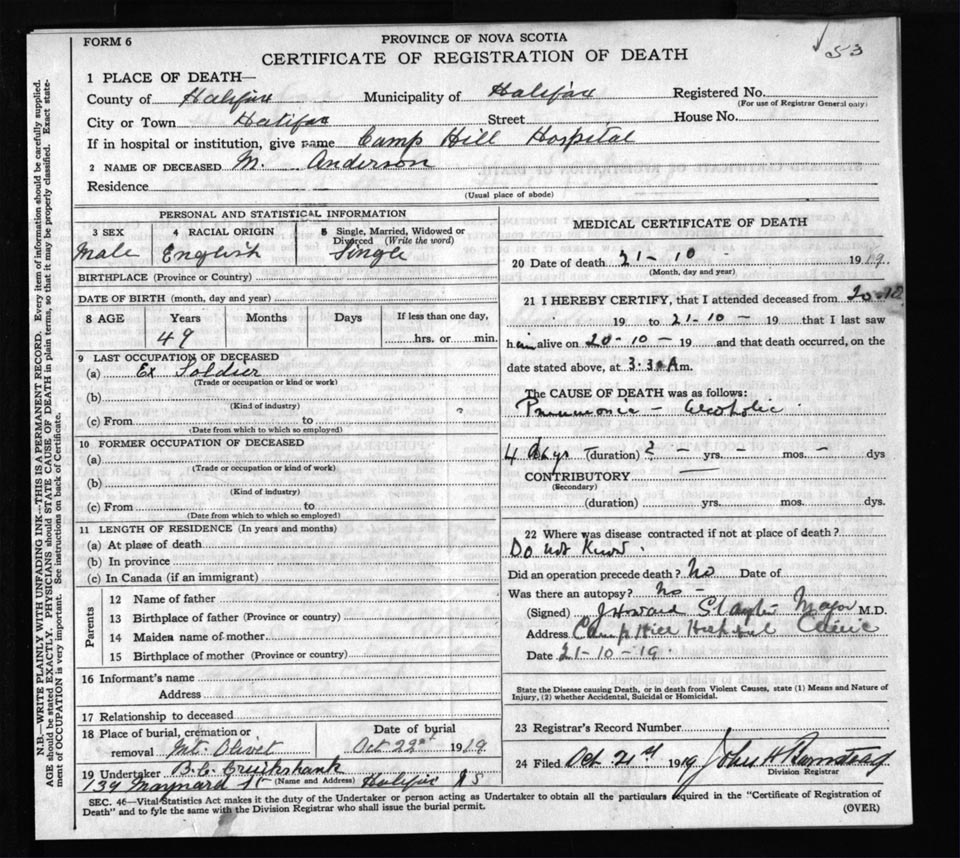 53
FORM 6
PROVINCE OF NOVA SCOTIA
CERTIFICATE OF REGISTRATION OF DEATH
1 PLACE OF DEATH—
County of Halifax Municipality of Halifax Registered No.
(For use of Registrar General only)
City or Town Halifax Street House No.
If in hospital or institution, give name Camp Hill Hospital
2 NAME OF DECEASED M. Anderson
Residence
(Usual place of abode)
PERSONAL AND STATISTICAL INFORMATION
3 SEX 4 RACIAL ORIGIN 5 Single, Married, Widowed or Divorced (Write the word)
Male English Single
BIRTHPLACE (Province or Country)
DATE OF BIRTH (month, day and year)
8 AGE Years Months Days If less than one day,
49 hrs. or min.
9 LAST OCCUPATION OF DECEASED
(a) Ex Soldier
(Trade or occupation or kind or work)
(b)
(Kind of industry)
(c) From to
(Date from which to which so employed)
10 FORMER OCCUPATION OF DECEASED
(a)
(Trade or occupation or kind of work)
(b)
(Kind of industry)
(c) From to
(Date from which to which so employed)
11 LENGTH OF RESIDENCE (In years and months)
(a) At place of death
(b) In province
(c) In Canada (if an immigrant)
Parents
12 Name of father
13 Birthplace of father (Province or country)
14 Maiden name of mother
15 Birthplace of mother (Province or country)
16 Informant's name
Address
17 Relationship to deceased
18 Place of burial, cremation or removal Mt. Olivet
Date of burial
Oct 22nd 1919
19 Undertaker B.C. Cruikshank
(Name and Address)
139 Maynard St Halifax N S.
MEDICAL CERTIFICATE OF DEATH
20 Date of death 21-10- 1919.
(Month, day and year)
21 I HEREBY CERTIFY, that I attended deceased from 20-10
19 to 21-10- 19 that I last saw
him alive on 20-10- 19 and that death occurred, on the
date stated above, at 3.30 A m.
The CAUSE OF DEATH was as follows:
Pneumonia - alcoholic
4 days (duration) ? - yrs. - mos. - dys
CONTRIBUTORY —
(Secondary)
(duration) yrs. mos. dys.
22 Where was disease contracted if not at place of death?
Do not Know.
Did an operation precede death? No Date of
Was there an autopsy? No -
(Signed) J Howard Slayter Major M.D.
Address Camp Hill Hospital
Date 21-10-19.
State the Disease causing Death, or in death from Violent Causes, state (1) Means and Nature of Injury, (2) whether Accidental, Suicidal or Homicidal.
23 Registrar's Record Number
24 Filed Oct 21st 1919 John H Armstrong
Division Registrar
SEC. 46—Vital Statistics Act makes it the duty of the Undertaker or person acting as Undertaker to obtain all the particulars required in the "Certificate of Registration of
Death" and to fyle the same with the Division Registrar who shall issue the burial permit.
(OVER)
N.B.—WRITE PLAINLY WITH UNFADING INK—THIS IS A PERMANENT RECORD. Every item of information should be carefully supplied.
AGE should be stated EXACTLY. PHYSICIANS should STATE CAUSE OF DEATH in plain terms, so that it may be properly classified. Exact state-
ment of OCCUPATION is very important. See instructions on back of Certificate.